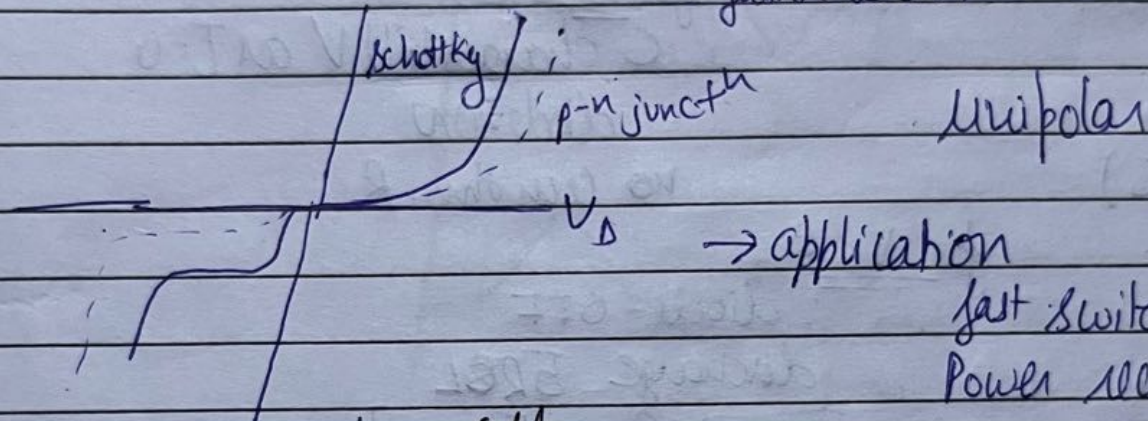 Schottky
p-n junctn
Unipolar
VD
→ application
fast switc
Power rec